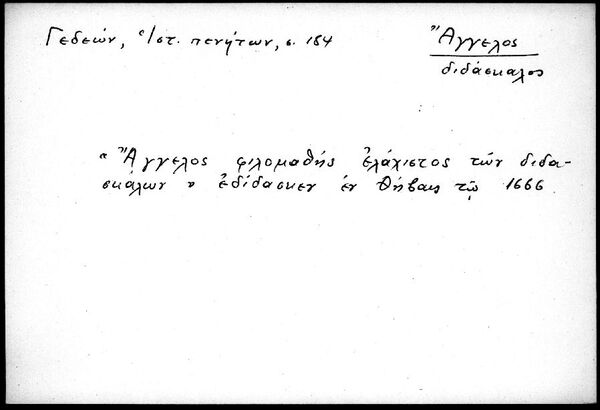 Γεδεών, Ἱστ. πενήτων, σ. 184
Ἄγγελος
διδάσκαλος
"Ἄγγελος φιλομαθής ἐλάχιστος τῶν διδα-
σκάλων" ἐδίδασκεν ἐν Θήβαις τῷ 1666